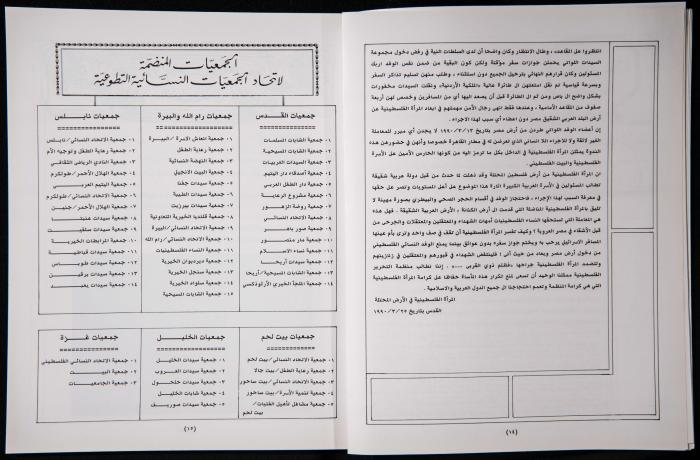 انتظروا على المقاعد، وطال الانتظار وكان واضحا أن لدى السلطات النية في رفض دخول مجموعة
السيدات اللواتي يحملن جوازات سفر مؤقتة ولكن كون البقية من ضمن نفس الوفد اربك
المسئولين وكان قرارهم النهائي بترحيل الجميع دون استثناء، وطلب منهن تسليم تذاكر السفر
وبسرعة قياسية تم نقل امتعتهن الى طائرة عالية «الملكية الأردنية» ونقلت السيدات مخفورات
بشكل واضح ال باص ومن ثم ال الطائرة قبل أن يصعد اليها أي من المسافرين وخصص لهن أربعة
صفوف من المقاعد الأمامية، وعندها فقط انهى رجال الأمن مهمتهم في ابعاد المرأة الفلسطينية عن
أرض البلد العربي الشقيق مصر دون اعطاء أي سبب لهذا الاجراء.
إن أعضاء الوفد اللواتي طردن من أرض مصر بتاريخ ١٩٩٠/٣/١٣ لا يجدن أي مبرر للمعاملة
الغير لائقة ولا للاجراء اللا انساني الذي تعرضن له في مطار القاهرة خصوصا وأنهن في حضورهن هذه
الندوة يمثلن المرأة الفلسطينية في الداخل بكل ما ترمز اليه من كونها الحارس الأمين على الأسرة
الفلسطينية والبيت الفلسطيني.
ان المرأة الفلسطينية في فلسطين المحتلة وقد ذهلت لما حدث من قبل دولة عربية شقيقة
تطالب المسئولين في الأسرة العربية الكبيرة اثارة هذا الموضوع على أعلى المستويات وتصر على حقها
في معرفة السبب لهذا الاجراء، فاحتجاز الوفد في أقسام الحجر الصحي والبيطري بصورة مهينة لا
تليق بالمرأة الفلسطينية المناضلة التي قدمت ال أرض الكنانة، الأرض العربية الشقيقة. فهل هذه
هي المعاملة التي تستحقها النساء الفلسطينيات أمهات الشهداء والمعتقلين والمعتقلات والجرحى من
قبل الأشقاء في مصر العروبة؟ وكيف تفسر المرأة الفلسطينية أن تقف في صف واحد وترى بأم عينها
المسافر الاسرائيلي يرحب به ويختم جواز سفره بدون عوائق بينما يمنع الوفد النسائي الفلسطيني
من دخول أرض مصر ويعاد من حيث أتى! فلينتفض الشهداء في قبورهم والمعتقلين في زنازينهم
ولتضمد المرأة الفلسطينية جراحها «فظلم ذوي القربى ....». إننا نطالب منظمة التحرير
الفلسطينية ممثلنا الوحيد أن تسعى لمنع تكرار هذه المأساة حفاظا على كرامة المرأة الفلسطينية
التي هي كرامة المنظمة ونعمم احتجاجنا ال جميع الدول العربية والاسلامية.
المرأة الفلسطينية في الأرض المحتلة
القدس بتاريخ ١٩٩٠/٣/٢٥
(١٤)
الجمعيات المنضمة
لاتحاد الجمعيات النسائية التطوعية
جمعيات القدس
١ - جمعية الشابات المسلمات
٢ - جمعية الشابات المسيحية
٣ - جمعية السيدات العربيات
٤ - جمعية أصدقاء دار اليتيم
٥ - جمعية دار الطفل العربي
٦ - جمعية مشروع الرعاية
٧ - جمعية روضة الزهور
٨ - جمعية الاتحاد النسائي
٩ - جمعية صور باهر
١٠ - جمعية مار منصور
١١ - جمعية نساء الاسلام
١٢ - جمعية سيدات أريحا
١٣ - جمعية الشابات المسيحية/أريحا
١٤ - جمعية الملجأ الخيري الأرثوذكسي
جمعيات رام الله والبيرة
١ - جمعية انعاش الأسرة/البيرة
٢ - جمعية رعاية الطفل
٣ - جمعية النهضة النسائية
٤ - جمعية بيت الانجيل
٥ - جمعية سيدات جفنا
٦ - جمعية سيدات الطيبة
٧ - جمعية سيدات بيرزيت
٨ - جمعية قلنديا الخيرية التعاونية
٩ - جمعية الاتحاد النسائي/البيرة
١٠ - جمعية الاتحاد النسائي/رام الله
١١ - جمعية النساء الفلسطينيات
١٢ - جمعية ديردبوان الخيرية
١٣ - جمعية سنجل الخيرية
١٤ - جمعية سلواد الخيرية
١٥ - جمعية الشابات المسيحية
جمعيات نابلس
١ - جمعية الاتحاد النسائي/نابلس
٢ - جمعية رعاية الطفل وتوجيه الأم
٣ - جمعية النادي الرياضي الثقافي
٤ - جمعية الهلال الأحمر/طولكرم
٥ - جمعية اليتيم العربي
٦ - جمعية الاتحاد النسائي/طولكرم
٧ - جمعية الهلال الأحمر/جنين
٨ - جمعية سيدات عنبتا
٩ - جمعية سيدات سلفيت
١٠ - جمعية المرابطات الخيرية
١١ - جمعية سيدات قباطية
١٢ - جمعية سيدات طوباس
١٣ - جمعية سيدات برقين
١٤ - جمعية سيدات يعبد
جمعيات بيت لحم
١ - جمعية الاتحاد النسائي/بيت لحم
٢ - جمعية رعاية الطفل/بيت جالا
٣ - جمعية الاتحاد النسائي/بيت ساحور
٤ - جمعية تنمية الأسرة/بيت ساحور
٥ - جمعية مشاغل تأهيل الفتيات/
بيت لحم
جمعيات الخليل
١ - جمعية سيدات الخليل
٢ - جمعية سيدات العروب
٣ - جمعية سيدات حلحول
٤ - جمعية شابات الخليل
٥ - جمعية سيدات صوريف
جمعيات غزة
١ - جمعية الاتحاد النسائي الفلسطيني
٢ - جمعية البيت
٣ - جمعية الجامعيات
(١٥)